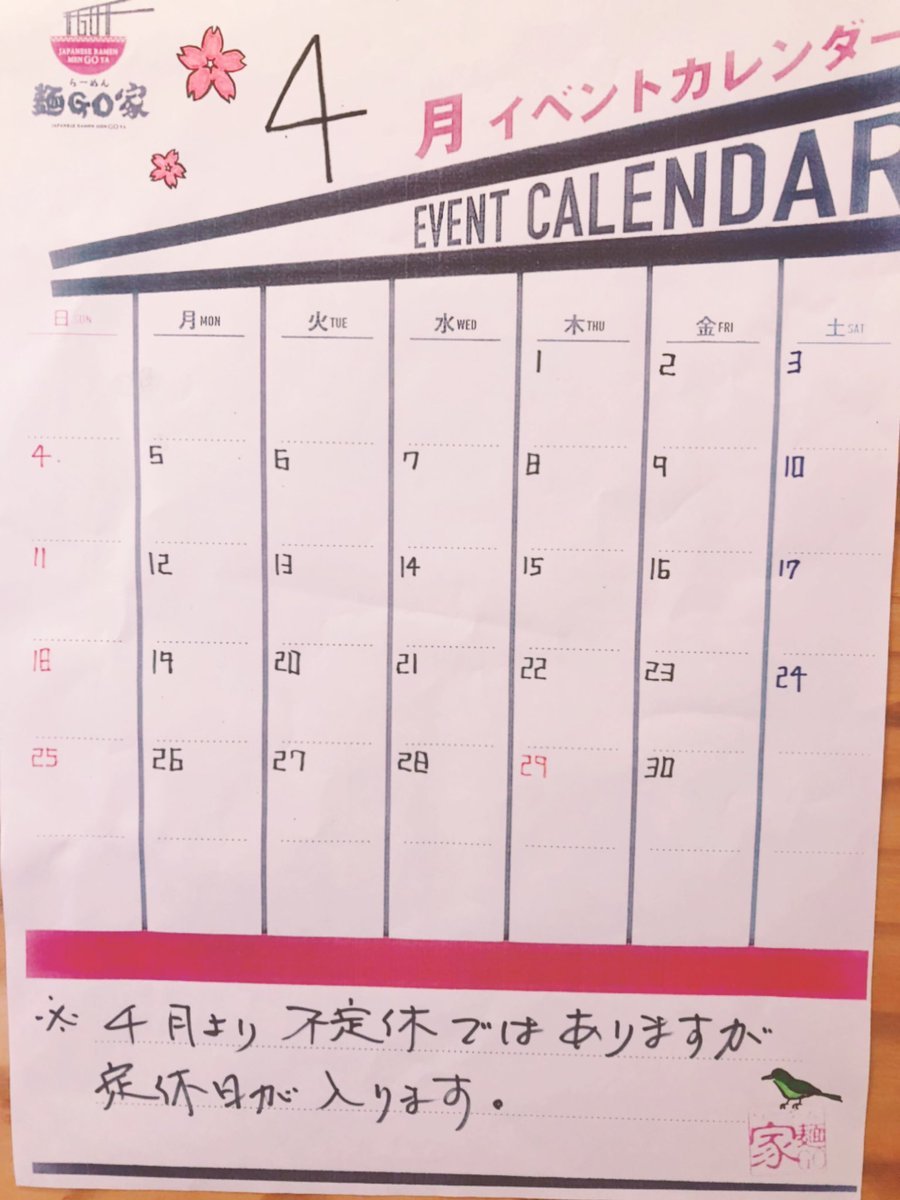 GO
JAPANESE RAMEN
MEN GO YA
らーめん
麺GO家
JAPANESE RAMEN MEN GO YA
4月イベントカレンダー
EVENT CALENDAR
日SUN 月MON 火TUE 水WED 木THU 金FRI 土SAT
1 2 3
4 5 6 7 8 9 10
11 12 13 14 15 16 17
18 19 20 21 22 23 24
25 26 27 28 29 30
※ 4月より 不定休ではありますが
定休日が入ります。
家 麺GO